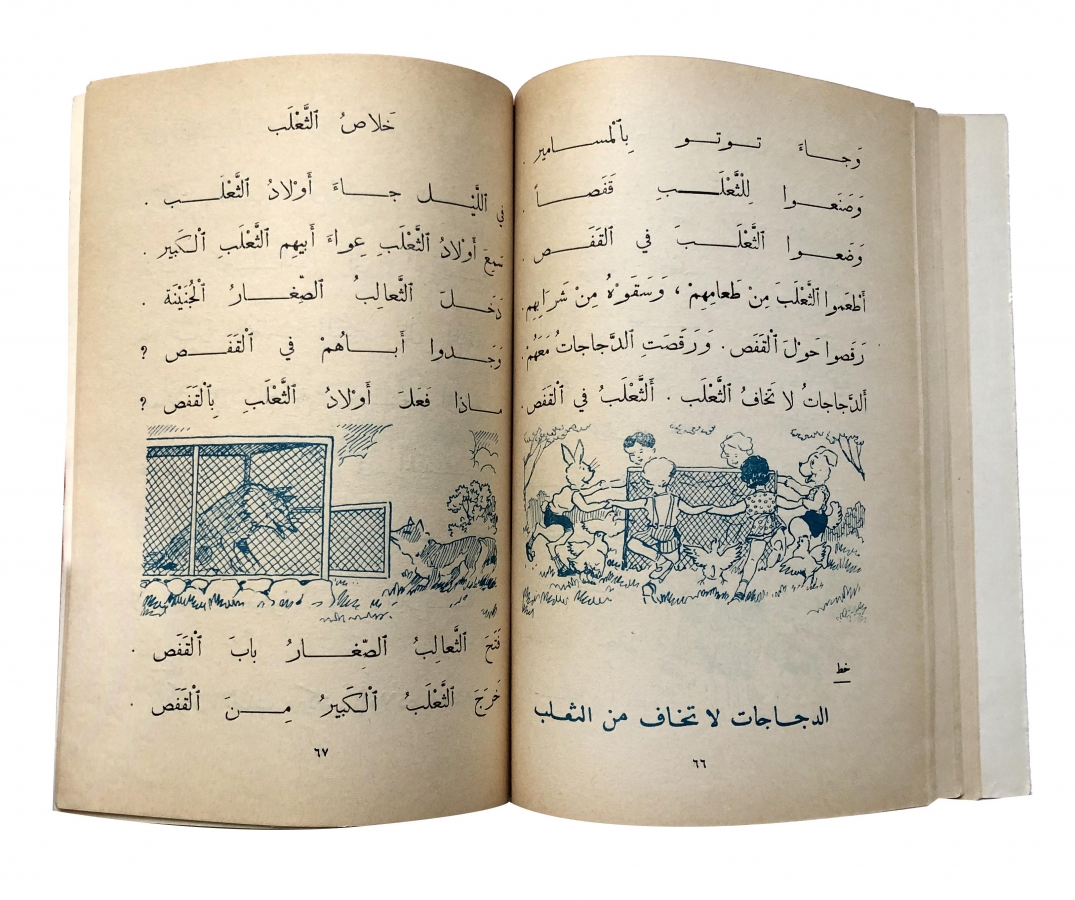 وَجاءَ توتو بِٱلْمسامير .
وَصَنَعوا لِلثَّعْلَبِ قَفَصاً .
وَضَعوا ٱلثَّعْلَبَ في ٱلقَفَصِ .
أَطْعَموا ٱلثَّعْلَبَ مِنْ طَعامِهِمْ ، وَسَقَوْهُ مِنْ شَرابِهِم .
رَقَصوا حَوْلَ ٱلْقَفَص . وَرَقَصَتِ ٱلدَّجاجاتُ مَعَهُمْ .
أَلدَّجاجاتُ لا تَخافُ ٱلثَّعْلَب . أَلثَّعْلَبُ في ٱلْقَفَص .
خط
الدجاجات لا تخاف من الثعلب
٦٦
خَلاصُ ٱلثَّعْلَب
في ٱللَّيْل جاءَ أَوْلادُ ٱلثَّعْلَب .
سَمِعَ أَوْلادُ ٱلثَّعْلَبِ عِواءَ أَبيهِم ٱلثَّعْلَبِ ٱلْكَبير .
دَخَلَ ٱلثَّعالِبُ ٱلصِّغارُ ٱلْجُنَيْنَة .
وَجَدوا أَباهُمْ في ٱلْقَفَص ؟
ماذا فَعَلَ أَوْلادُ ٱلثَّعْلَبِ بِٱلْقَفَص ؟
فَتَحَ ٱلثَّعالِبُ ٱلصِّغارُ بابَ ٱلْقَفَص .
خَرَجَ ٱلثَّعْلَبُ ٱلْكَبيرُ مِنَ ٱلْقَفَص .
٦٧